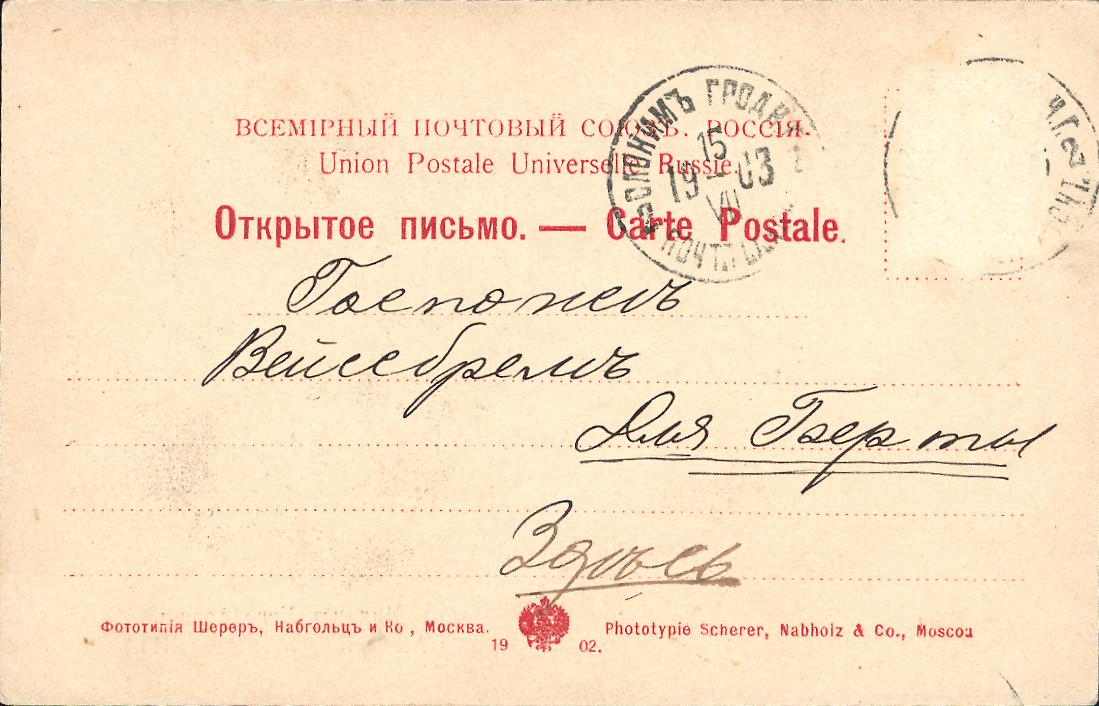 ВСЕМІРНЫЙ ПОЧТОВЫЙ СОЮЗЪ. РОССІЯ.
Union Postale Universelle Russie.
Открытое письмо. — Carte Postale.
СЛОНИМЪ ГРОДН
15
19 03
VII
ПОЧТ
Госпожѣ
Вейсбремъ
Для Берты
Здѣсь
Фототипія Шереръ, Набгольцъ и Ко, Москва.
19 02.
Phototypie Scherer, Nabholz & Co., Moscou